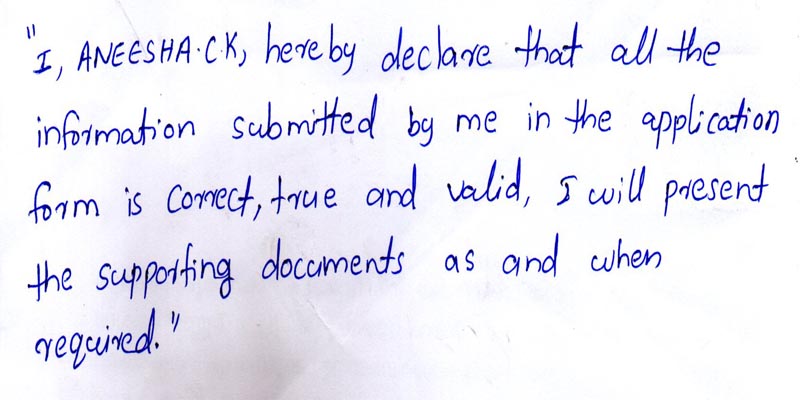 "I, ANEESHA.C.K, hereby declare that all the
information submitted by me in the application
form is correct, true and valid, I will present
the supporting documents as and when
required."